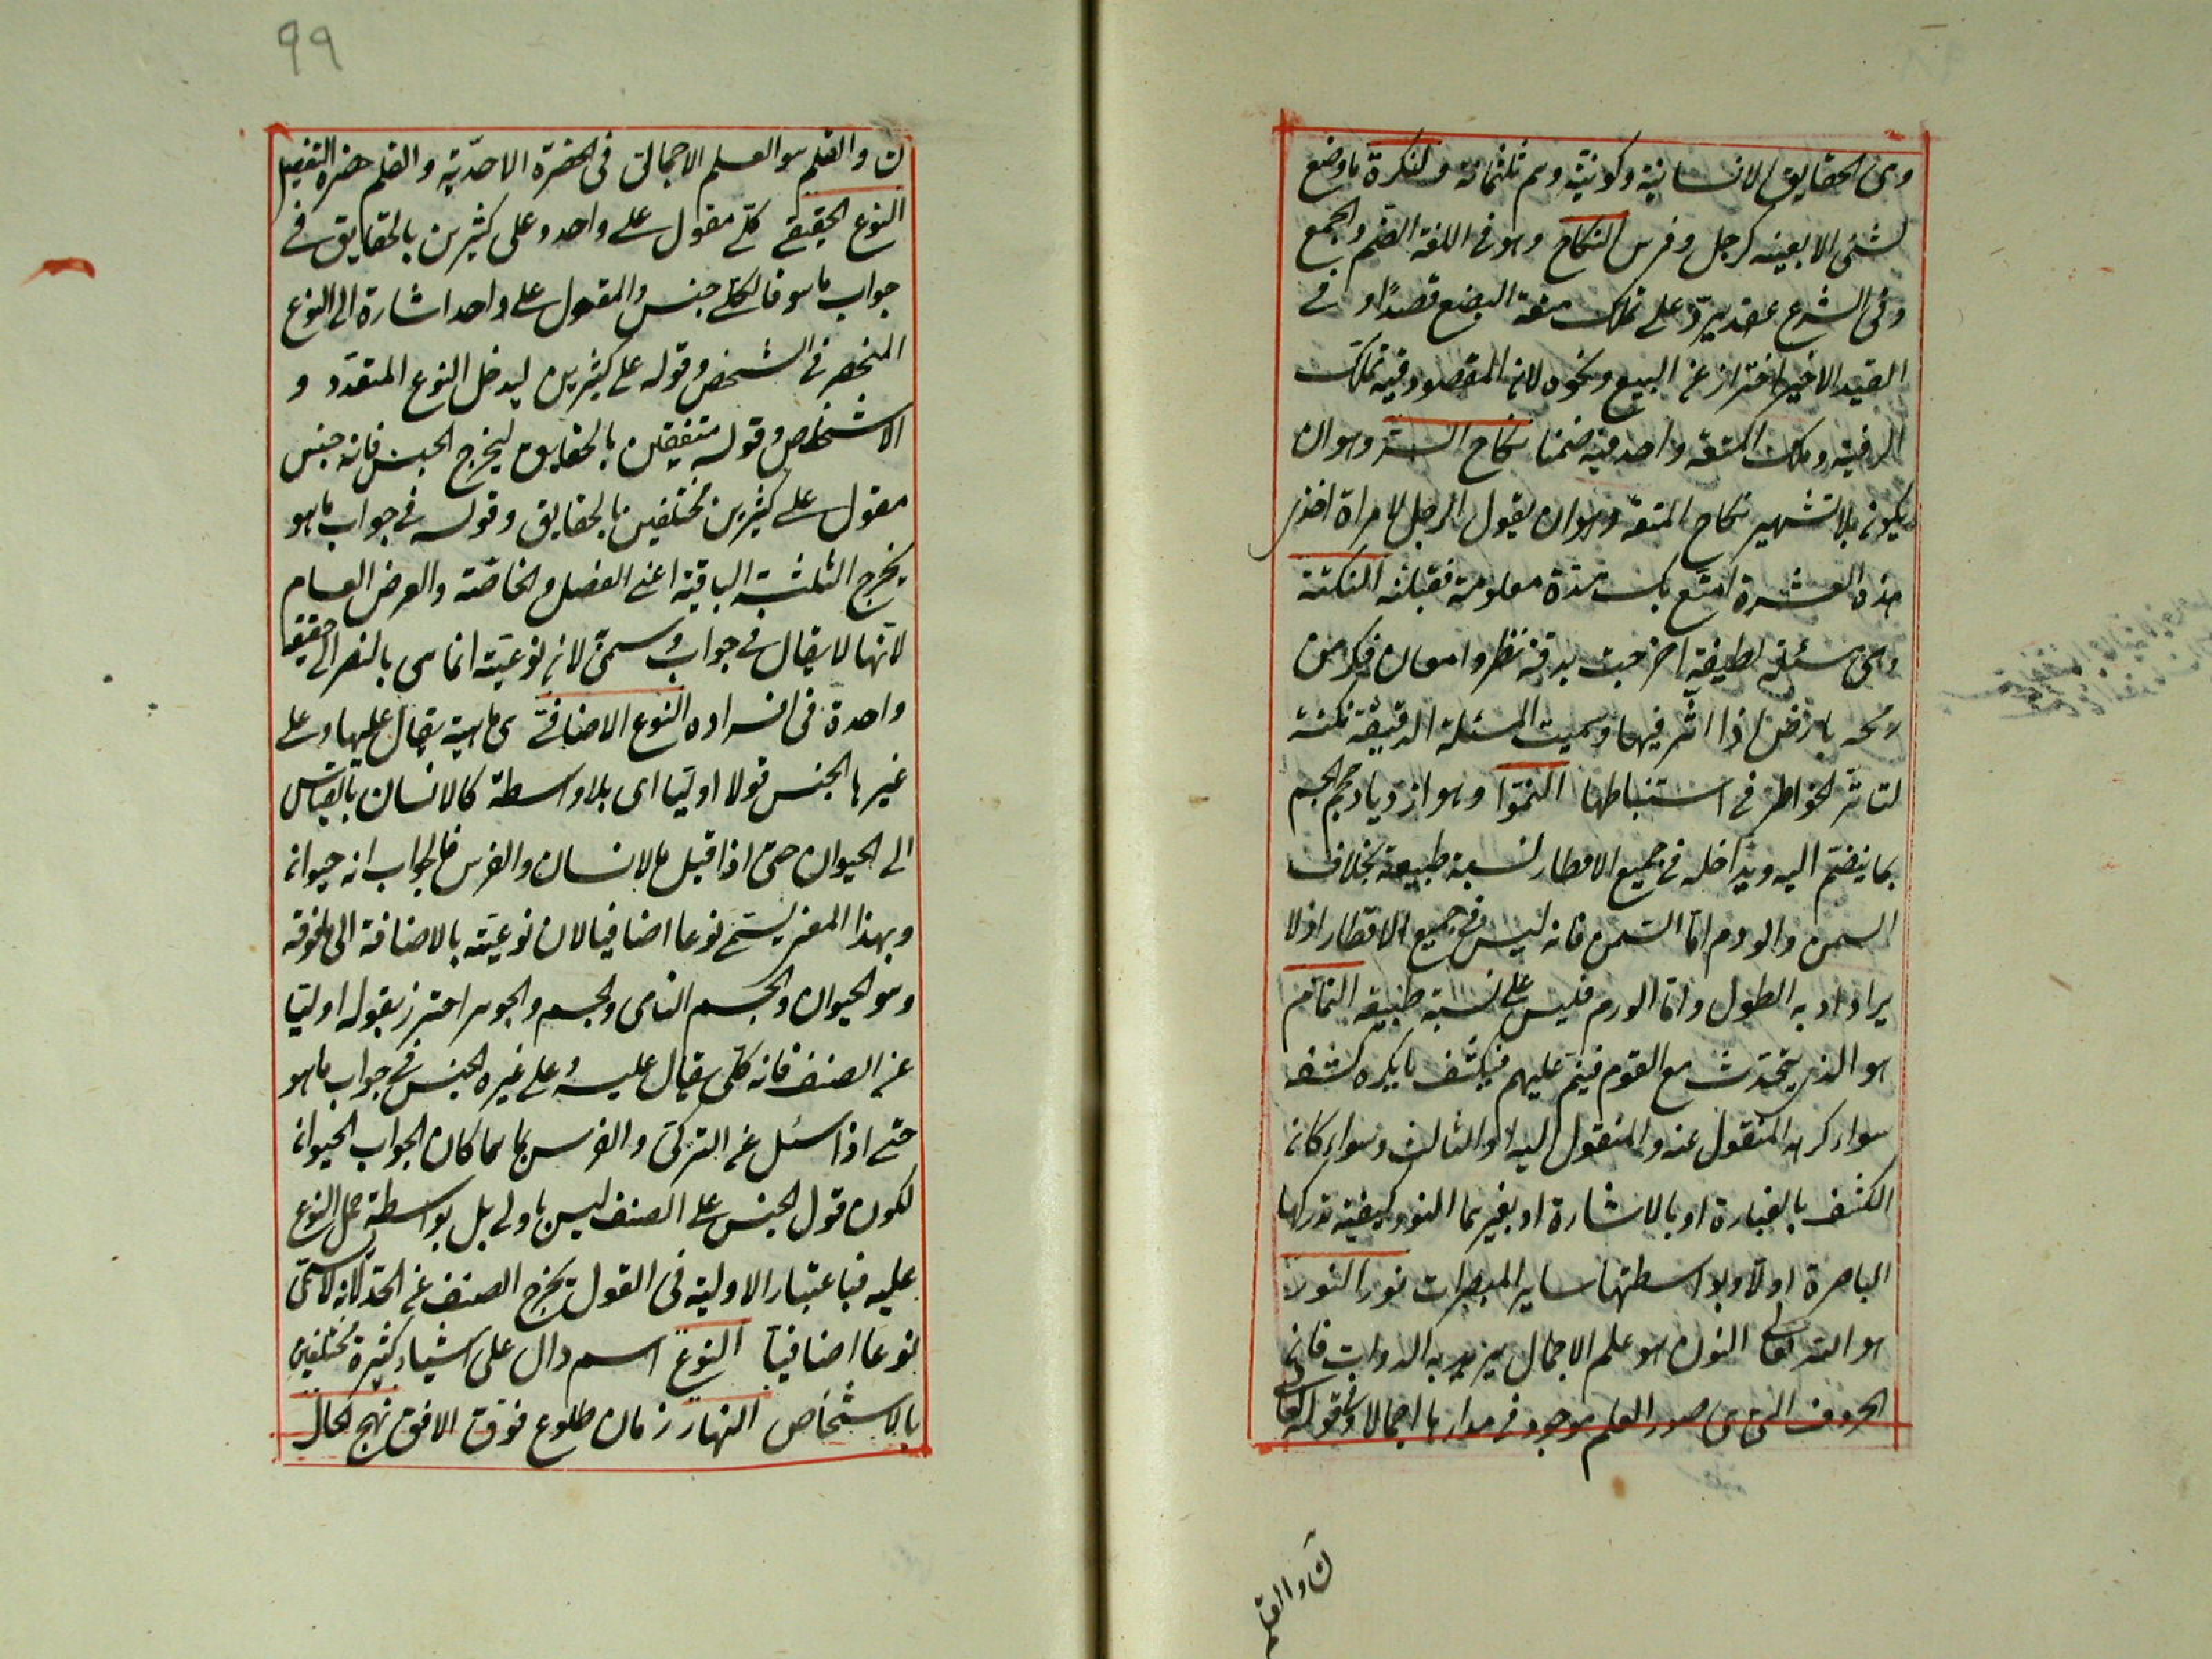 وهى الحقايق الانسانية وكونية وهم ثلثمائة والنكرة ما وضع
لشئ لا بعينه كرجل وفرس النكاح وهو فى اللغة الضم والجمع
وفى الشرع عقد يرد على تملك منفعة البضع قصدا و فى
القيد الاخير احتراز عن البيع ونحوه لان المقصود فيه تملك
الرقبة وملك المتعة داخل فيه ضمنا نكاح السر وهو ان
يكون بلا تشهير نكاح المتعة وهو ان يقول الرجل لامراة خذى
هذه العشرة اتمتع بك مدة معلومة فقبلته النكتة
هى مسئلة لطيفة اخرجت بدقة نظر وامعان فكر من
رمحه بارض اذا اثر فيها وسميت المسئلة الدقيقة نكتة
لتاثر الخواطر فى استنباطها النمو وهو ازدياد حجم الجسم
بما ينضم اليه ويداخله فى جميع الاقطار نسبة طبيعية بخلاف
السمن والورم اما السمن فانه ليس فى جميع الاقطار اذ لا
يزاد به الطول واما الورم فليس على نسبة طبيعية النمام
هو الذى يتحدث مع القوم فينم عليهم فيكشف ما يكره كشفه
سواء كرهه المنقول عنه والمنقول اليه او الثالث وسواء كان
الكشف بالعبارة او بالاشارة او بغيرهما النور كيفية تدركها
الباصرة اولا وبواسطتها ساير المبصرات نور النور
هو الله تعالى النون هو علم الاجمال يريد به الدواة فان
الحروف التى هى صور العلم موجود فى مدادها اجمالا وفى قوله تعالى
ن والقلم
ن والقلم هو العلم الاجمالى فى الحضرة الاحدية والقلم حضرة التفصيل
النوع الحقيقى كلى مقول على واحد وعلى كثيرين بالحقايق فى
جواب ما هو فالكلى جنس والمقول على واحد اشارة الى النوع
المنحصر فى الشخص وقوله على كثيرين ليدخل النوع المتعدد و
الاشخاص وقوله متفقين بالحقايق ليخرج الجنس فانه جنس
مقول على كثيرين مختلفين بالحقايق وقوله فى جواب ما هو
يخرج الثلثة الباقية اعنى الفصل والخاصة والعرض العام
لانها لا يقال فى جواب وسمى لان نوعيته انما هى بالنظر الى حقيقة
واحدة فى افراده النوع الاضافى هى ماهية يقال عليها وعلى
غيرها الجنس قولا اوليا اى بلا واسطة كالانسان بالقياس
الى الحيوان حتى اذا قيل ما الانسان والفرس فالجواب انه حيوان
وبهذا المعنى يسمى نوعا اضافيا لان نوعيته بالاضافة الى ما فوقه
وهو الحيوان والجسم النامى والجسم والجوهر احترز بقوله اوليا
عن الصنف فانه كلى يقال عليه وعلى غيره الجنس فى جواب ما هو
حتى اذا سئل عن التركى والفرس بما هما كان الجواب الحيوان
لكون قول الجنس على الصنف ليس باولى بل بواسطة حمل النوع
عليه فباعتبار الاولية فى القول يخرج الصنف عن الحد لانه لا يسمى
نوعا اضافيا النوع اسم دال على اشياء كثيرة مختلفين
بالاشخاص النهار زمان طلوع فوق الافق نهج لحال
٩٩